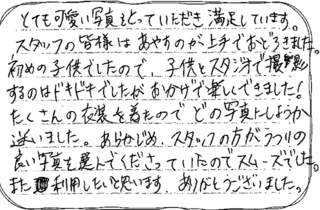 とても可愛い写真をとっていただき満足しています。
スタッフの皆様はあやすのが上手でおどろきました。
初めの子供でしたので、子供とスタジオで撮影
するのはドキドキでしたがおかげで楽しくできました！
たくさんの衣装を着たのでどの写真にしようか
迷いました。あらかじめ、スタッフの方がうつりの
良い写真を選んでくださっていたのでスムーズでした。
また利用したいと思います。ありがとうございました。